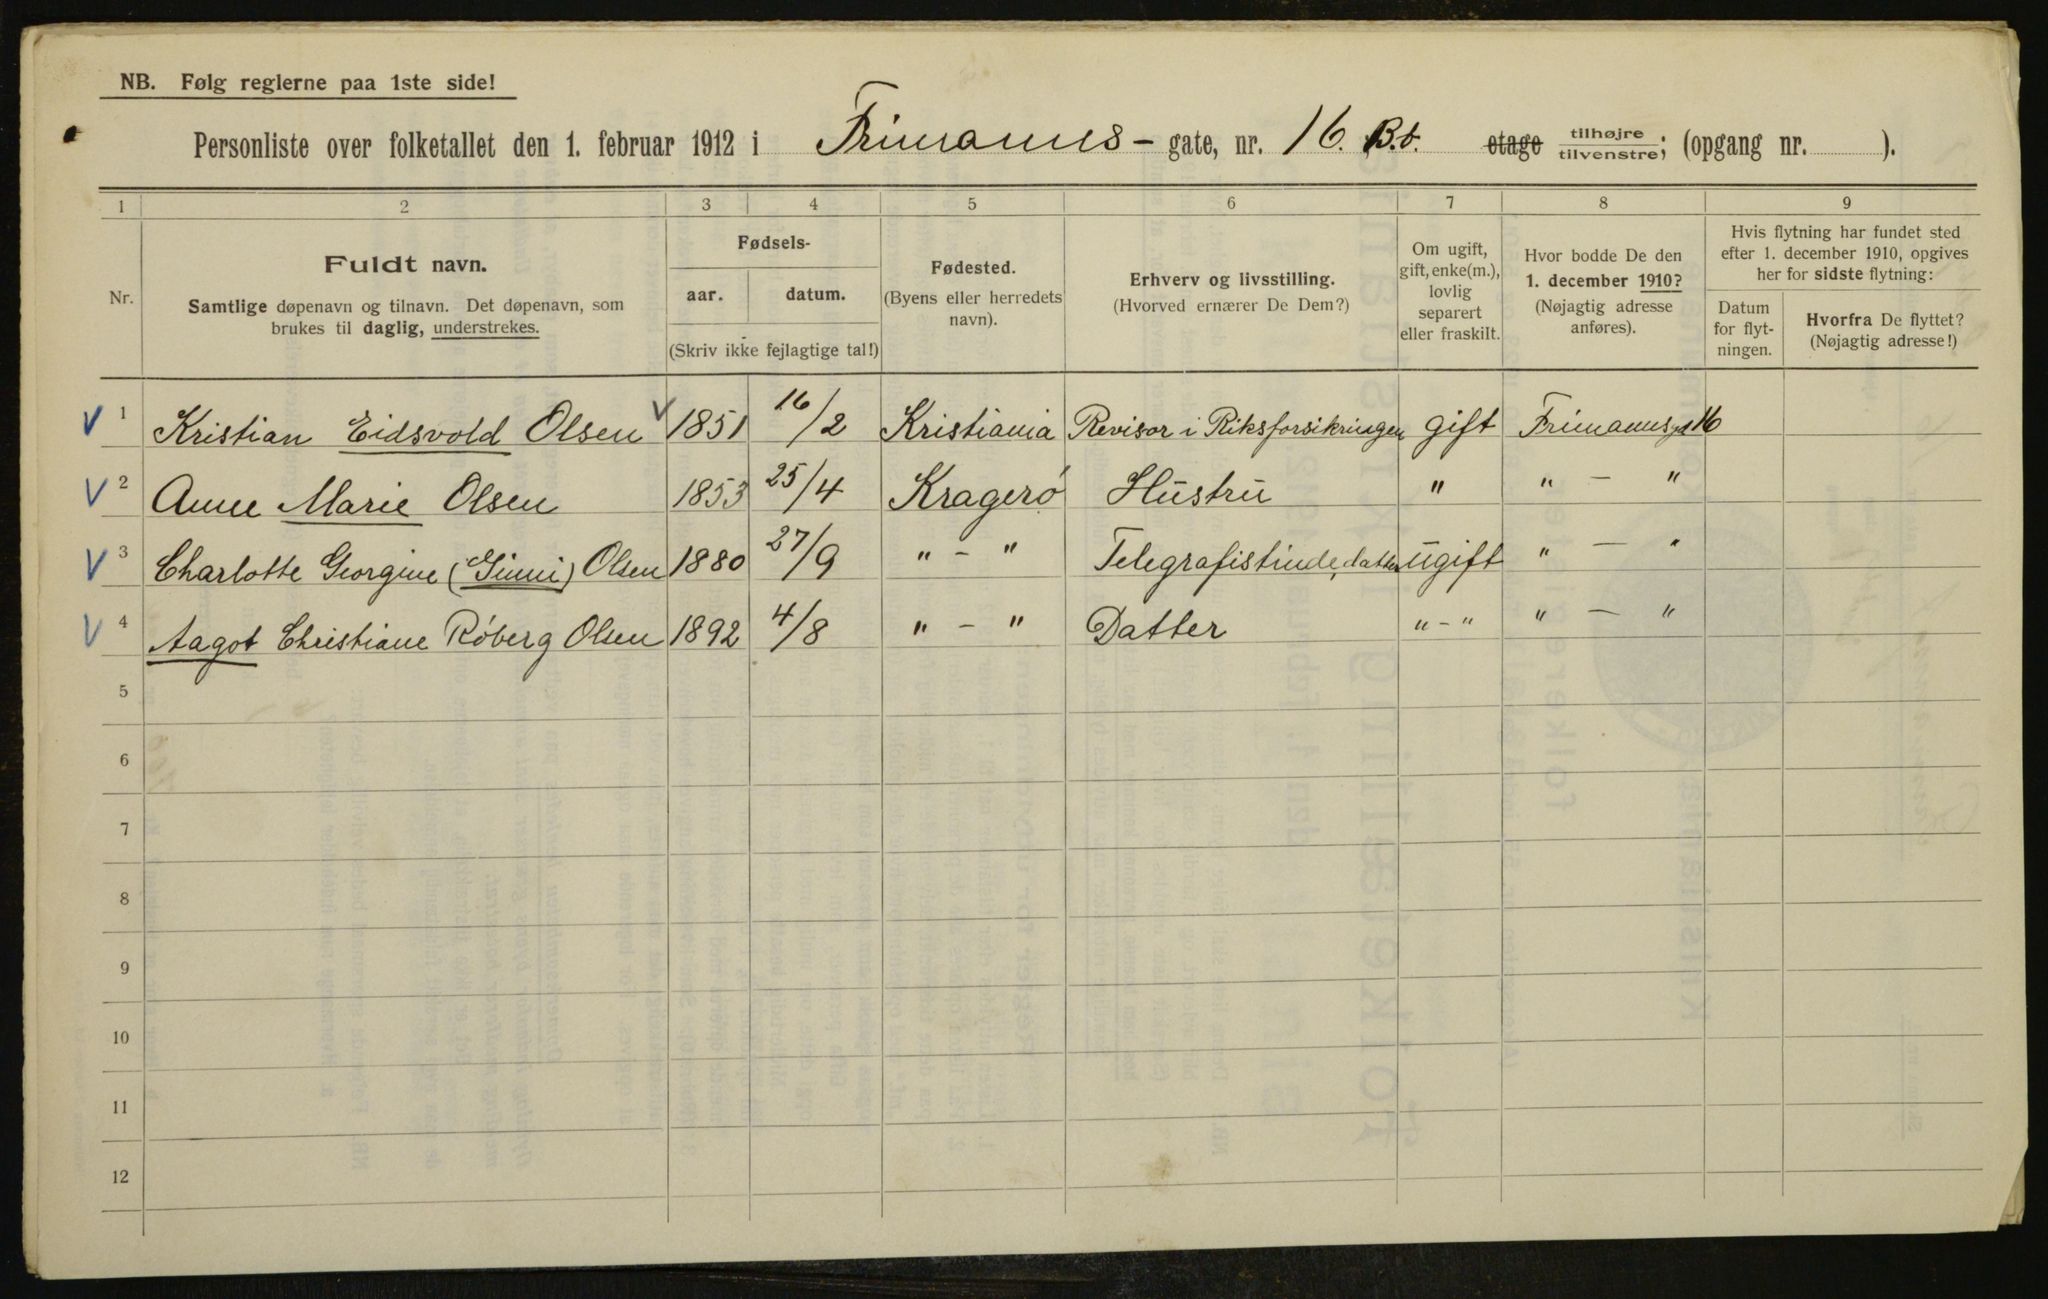 NB. Følg reglerne paa 1ste side!
Personliste over folketallet den 1. februar 1912 i Frimanns - gate, nr. 16. B.b. etage tilhøjre / tilvenstre; (opgang nr. ).
1 2 3 4 5 6 7 8 9
Nr.
Fuldt navn.
Samtlige døpenavn og tilnavn. Det døpenavn, som
brukes til daglig, understrekes.
Fødsels-
aar. datum.
(Skriv ikke fejlagtige tal!)
Fødested.
(Byens eller herredets
navn).
Erhverv og livsstilling.
(Hvorved ernærer De Dem?)
Om ugift,
gift, enke(m.),
lovlig
separert
eller fraskilt.
Hvor bodde De den
1. december 1910?
(Nøjagtig adresse
anføres).
Hvis flytning har fundet sted
efter 1. december 1910, opgives
her for sidste flytning:
Datum
for flyt-
ningen.
Hvorfra De flyttet?
(Nøjagtig adresse!)
V 1 Kristian Eidsvold Olsen V 1851 16/2 Kristiania Revisor i Riksforsikringen gift Frimannsgt 16
V 2 Anne Marie Olsen 1853 25/4 Kragerø Hustru " " — "
V 3 Charlotte Georgine (Ginni) Olsen 1880 27/9 " — " Telegrafistinde, datter ugift " — "
V 4 Aagot Christiane Røberg Olsen 1892 4/8 " — " Datter " - " " — "
5
6
7
8
9
10
11
12